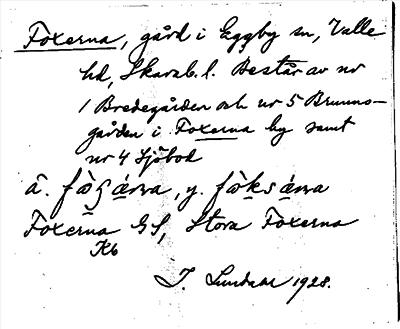 Foxerna, gård i Eggby sn, Valle
hd, Skarab. l. Består av nr
1 Bredegården och nr 5 Brunns-
gården i Foxerna by samt
nr 4 Sjöbod
Foxerna GS, Stora Foxerna
Kb
I. Lundahl 1928.